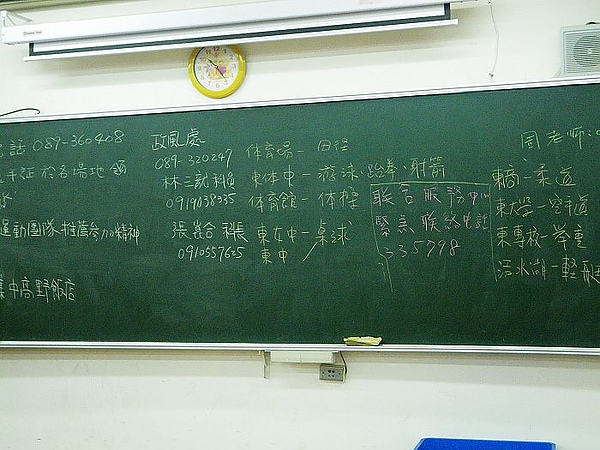 電話 089-360408
手証於各場地領
運動團隊推薦參加精神
集中高野飯店
政風處
089-320247
林三就科員
0919138335
張崑合科長
0910557625
体育場－田徑
東体中－游泳、跆拳、射箭
体育館－体操
東女中－桌球
東中
聯合服務中心
緊急聯絡電話
335798
周老師:
東商－柔道
東大學－空手道
東專校－舉重
活水湖－輕艇